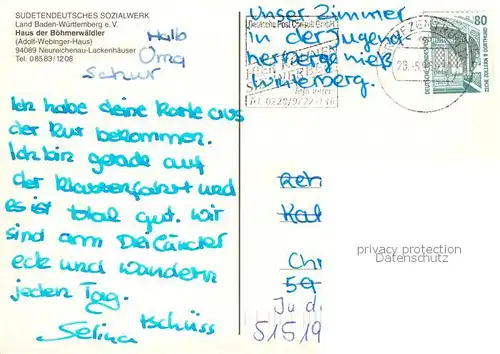 SUDETENDEUTSCHES SOZIALWERK
Land Baden-Württemberg e.V.
Haus der Böhmerwäldler
(Adolf-Webinger-Haus)
94089 Neureichenau-Lackenhäuser
Tel. 08583/1208
Hallo
Oma
Ich habe deine Karte aus
der Kur bekommen.
Ich bin gerade auf
der Klassenfahrt und
es ist total gut. Wir
sind am Dreiländer
eck und wandern
jeden Tag.
tschüss
Selina
Unser Zimmer
in der Jugend
herberge hieß
Winterberg.
Deutsche Post Consult GmbH
80
DEUTSCHE BUNDESPOST
ZECHE ZOLLERN II DORTMUND
Reh
Kal
Ch
59
Jud
51519
privacy protection
Datenschutz